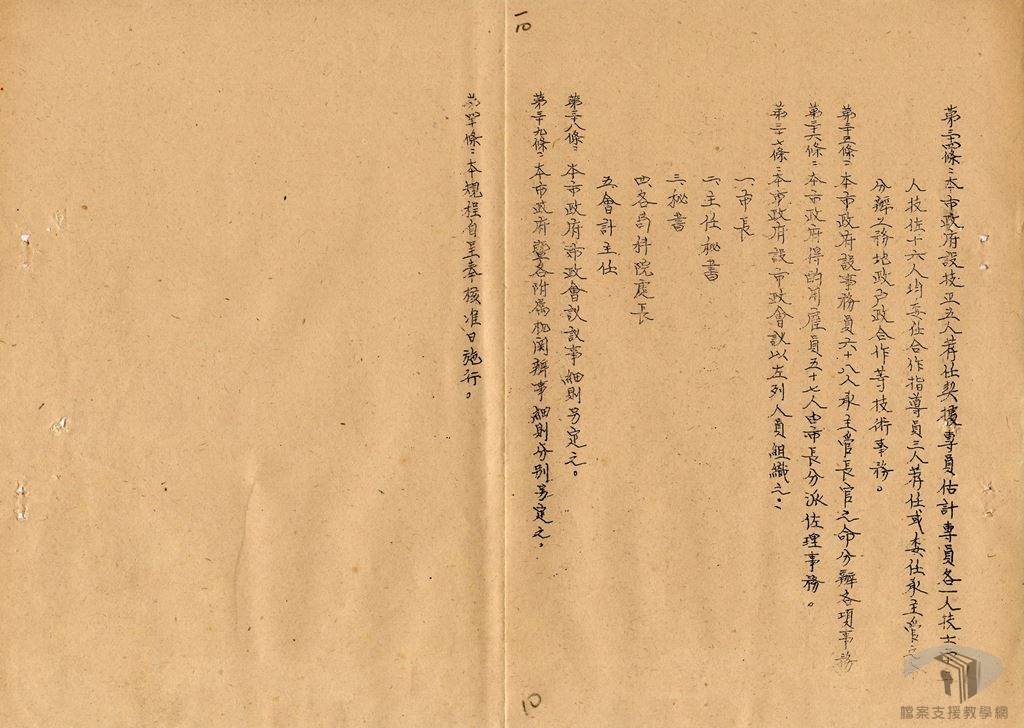 一10
第三十四條：本市政府設技正五人荐任契據專員估計專員各一人技士
人技佐十六人均委任合作指導員三人荐任或委任承主管之
分辦之務地政戶政合作等技術事務。
第三十五條：本市政府設事務員六十八人承主管長官之命分辦各項事務
第三十六條：本市政府得酌用雇員五十七人由市長分派佐理事務。
第三十七條：本市政府設市政會議以左列人員組織之：
一、市長
二、主任秘書
三、秘書
四、各局科院處長
五、會計主任
第三十八條：本市政府市政會議議事細則另定之。
第三十九條：本市政府暨各附屬机関辦事細則分别另定之。
第四十條：本規程自呈奉核准日施行。
10
檔案支援教學網